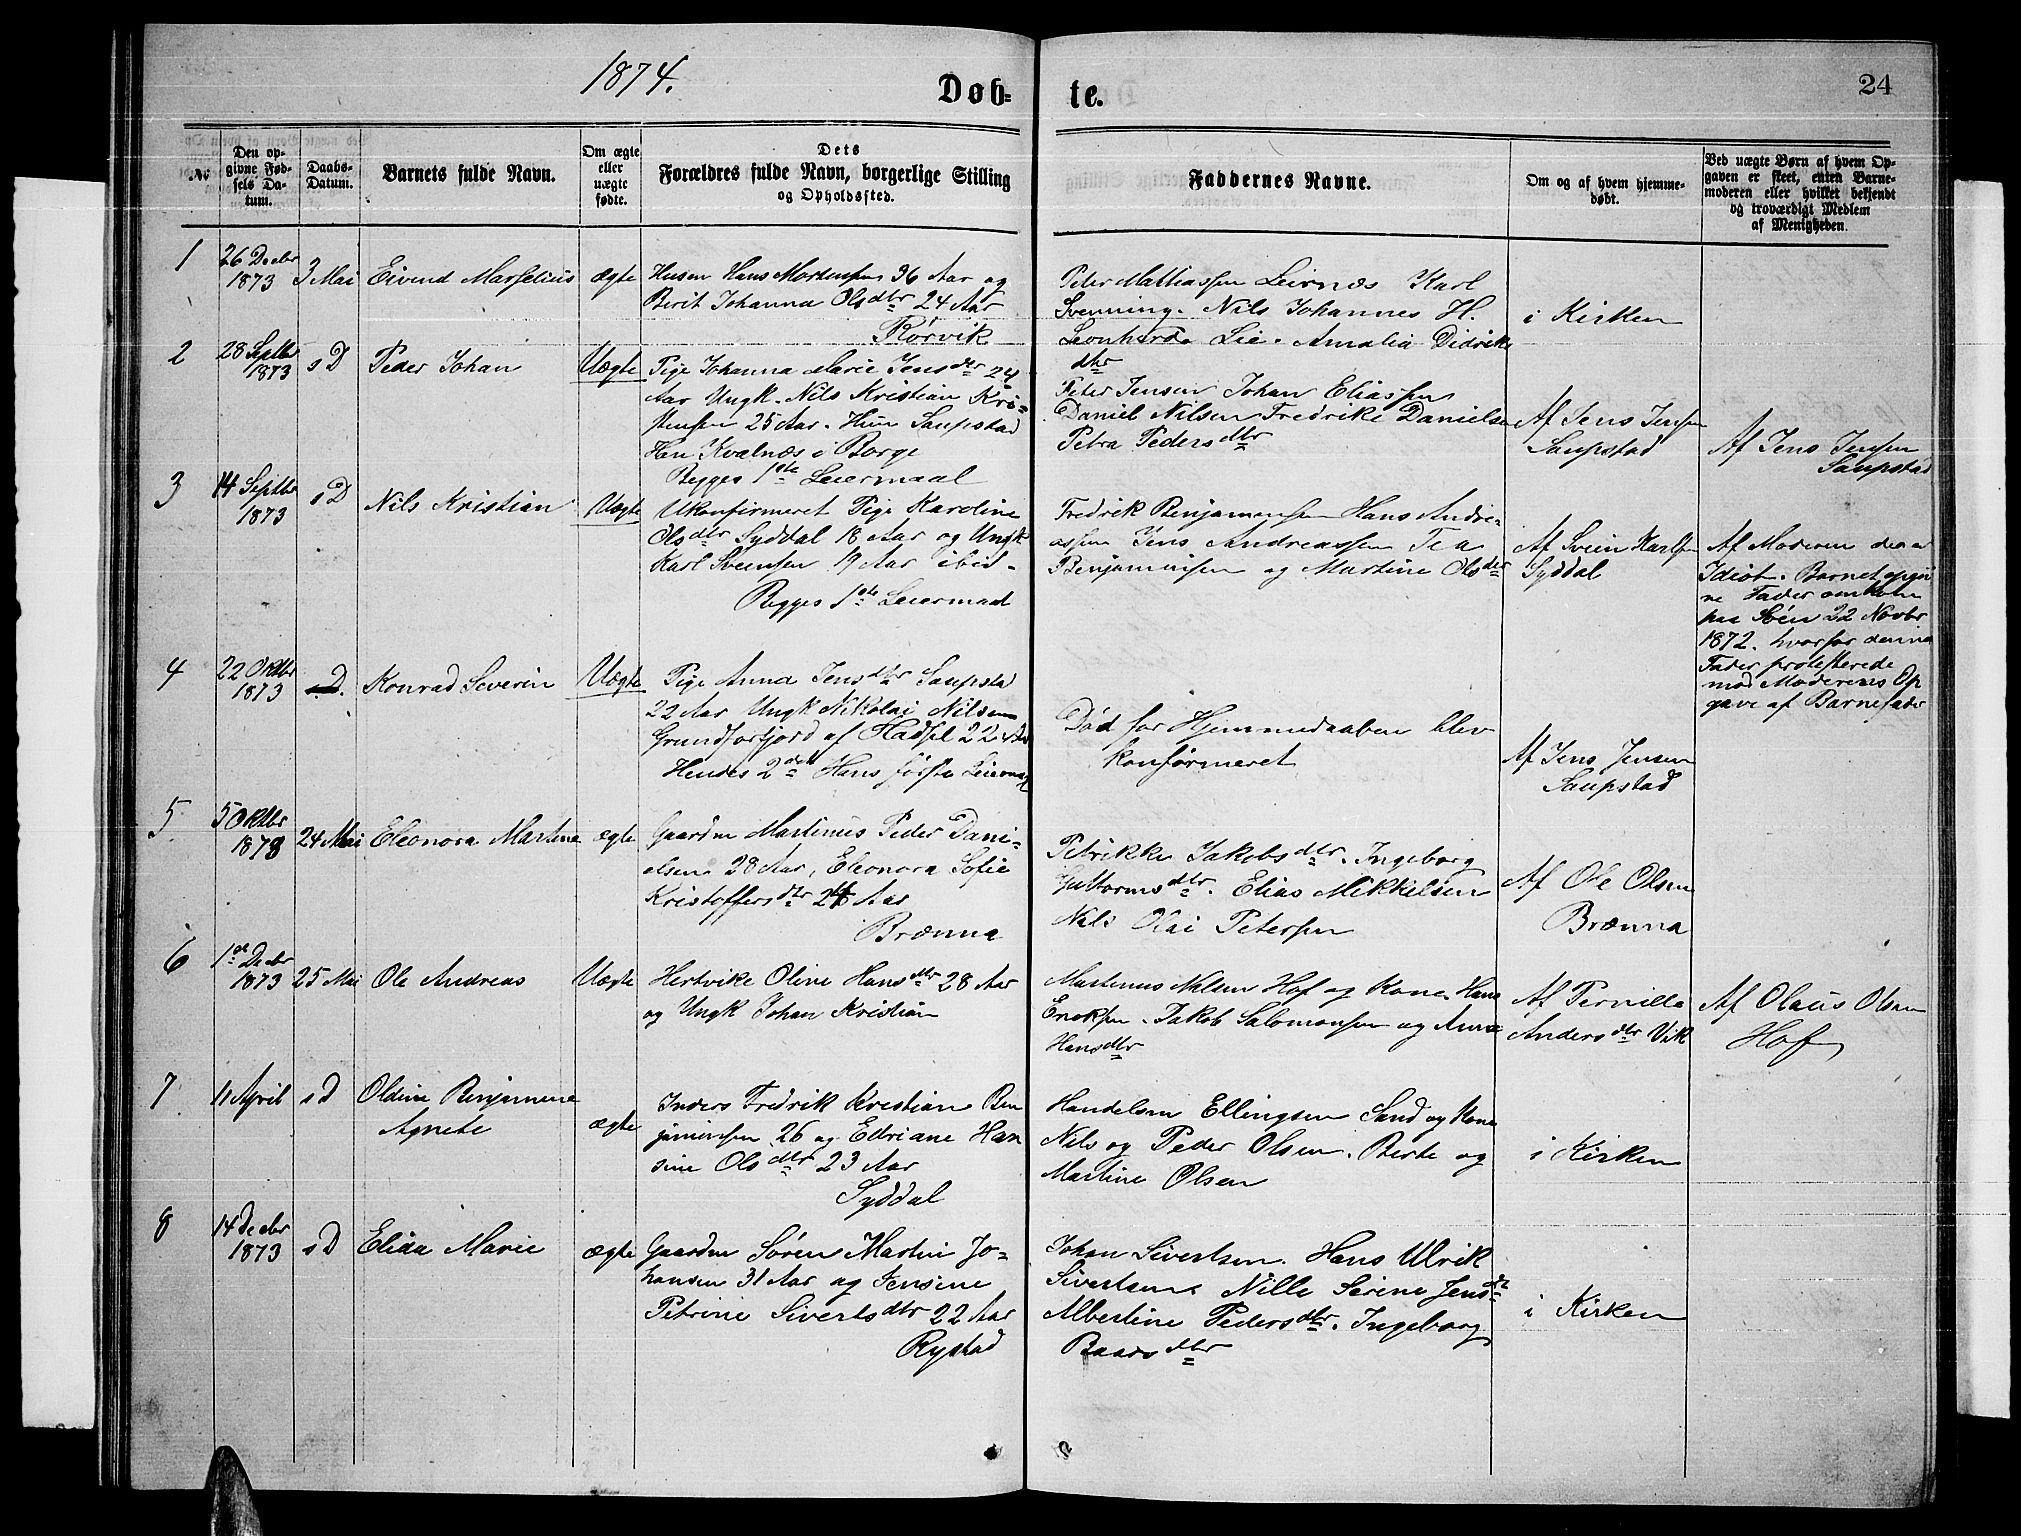 1874.
Døb-
te.
24
No
Den op-
givne Fød-
sels Da-
tum.
Daabs-
Datum.
Barnets fulde Navn.
Om ægte
eller
uægte
fødte.
Dets
Forældres fulde Navn, borgerlige Stilling
og Opholdssted.
Faddernes Navne.
Om og af hvem hjemme-
døbt.
Ved uægte Børn af hvem Op-
gaven er skeet, enten Barne-
moderen eller hvilket bekjendt
og troværdigt Medlem
af Menigheden.
1
26 Decbr
1873
3 Mai
Eivind Marselius
ægte
Husm Hans Mortensen 36 Aar og
Berit Johanna Olsdtr 24 Aar
Rørvik
Peter Mathiassen Leirnæs Karl
Svenning. Nils Johannes H.
Leonharda Lie. Amalia Didriks
dtr
i Kirken
2
28 Septbr
1873
s D
Peder Johan
Uægte
Pige Johanna Marie Jensdtr 24
Aar Ungk. Nils Kristian Kri-
stensen 25 Aar. Hun Saupstad
Han Kvalnæs i Borge
Begges 1ste Leiermaal
Peter Jensen Johan Eliassen
Daniel Nilsen Fredrike Danielsen
Petra Pedersdtr
Af Jens Jensen
Saupstad
Af Jens Jensen
Saupstad
3
14 Septbr
1873
s D
Nils Kristian
Uægte
Ukonfirmeret Pige Karoline
Olsdtr Syddal 18 Aar og Ungk
Karl Sveinsen 19 Aar ibid-
Begges 1ste Leiermaal
Fredrik Benjaminsen Hans Andre-
assen Jens Andreassen Tea
Benjaminsen og Martine Olsdtr
Af Svein Karlsen
Syddal
Af Moderen der er
Idiot. Barnet opgiv
ne Fader omkom
paa Søen 22 Novbr
1872. hvorfor denne
Fader protesterede
mod Moderens Op
gave af Barnefader
4
22 Oktbr
1873
s D.
Konrad Severin
Uægte
Pige Anna Jensdtr Saupstad
22 Aar Ungk Nikolai Nilsen
Grundforfjord af Hadsel 22 Aar
Hendes 2det Hans første Leiermaal
Død før Hjemmedaaben blev
konfirmeret
Af Jens Jensen
Saupstad
5
5 Oktbr
1873
24 Mai
Eleonora Martine
ægte
Gaardm Martinus Peder Dani-
elsen 28 Aar, Eleonora Sofie
Kristoffersdtr Aar
Brænna
Petrikke Jakobsdtr. Ingeborg
Guttormsdtr. Elias Mikkelsen
Nils Olai Petersen
Af Ole Olsen
Brænna
6
1de Decbr
1873
25 Mai
Ole Andreas
Uægte
Hertvike Oline Hansdtr 28 Aar
og Ungk Johan Kristian
Martinus Nilsen Hof og Kone. Hans
Enoksen. Jakob Salomonsen og Anna
Hansdtr
Af Pernilla
Andersdtr Vik
Af Olaus Olsen
Hof
7
11 April
s D
Oldine Benjamine
Agnete
ægte
Inders Fredrik Kristian Ben
jaminsen 26 og Edriane Han
sine Olsdtr 23 Aar
Syddal
Handelsm Ellingsen Sand og Kone
Nils og Peder Olsen. Berte og
Martine Olsen
i Kirken
8
14 Decbr
1873
s D
Elida Marie
ægte
Gaardm Søren Martin Jo-
hansen 31 Aar og Jensine
Petrine Sivertsdtr 22 Aar
Rystad
Johan Sivertsen. Hans Ulrik
Sivertsen. Nille Serine Jensdtr
Albertine Pedersdtr. Ingeborg
Baarsdtr
i Kirken